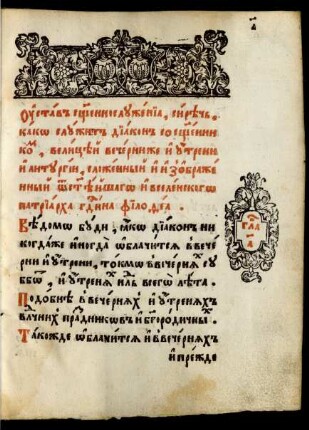 а҃
Оуставъ сщ҃еннослꙋженїѧ, сирѣчь.
какѡ слꙋжитъ дїаконъ со сщ҃енни
комъ, велицѣй вечерни же и ꙋтрени
и литꙋргїи, сложенный и изображе
нный ѿ ст҃ѣйшагѡ и вселенскагѡ
патрїарха гдⷭ҇ина филоѳеа
Вѣдомо бꙋди, ꙗкѡ дїаконъ ни
когдаже иногда ѡблачитсѧ в вече
рни и ꙋтрени, токмѡ в вечернѧхъ сꙋ
ббѡтъ, и ꙋтренѧхъ всегѡ лѣта.
Подобнѣ в вечернѧхъ и ꙋтренѧхъ
влⷣчнихъ праздникѡвъ и бг҃ородичныхъ
Такожде ѡблачитсѧ и в вечернѧхъ
и прежде
гла
а҃